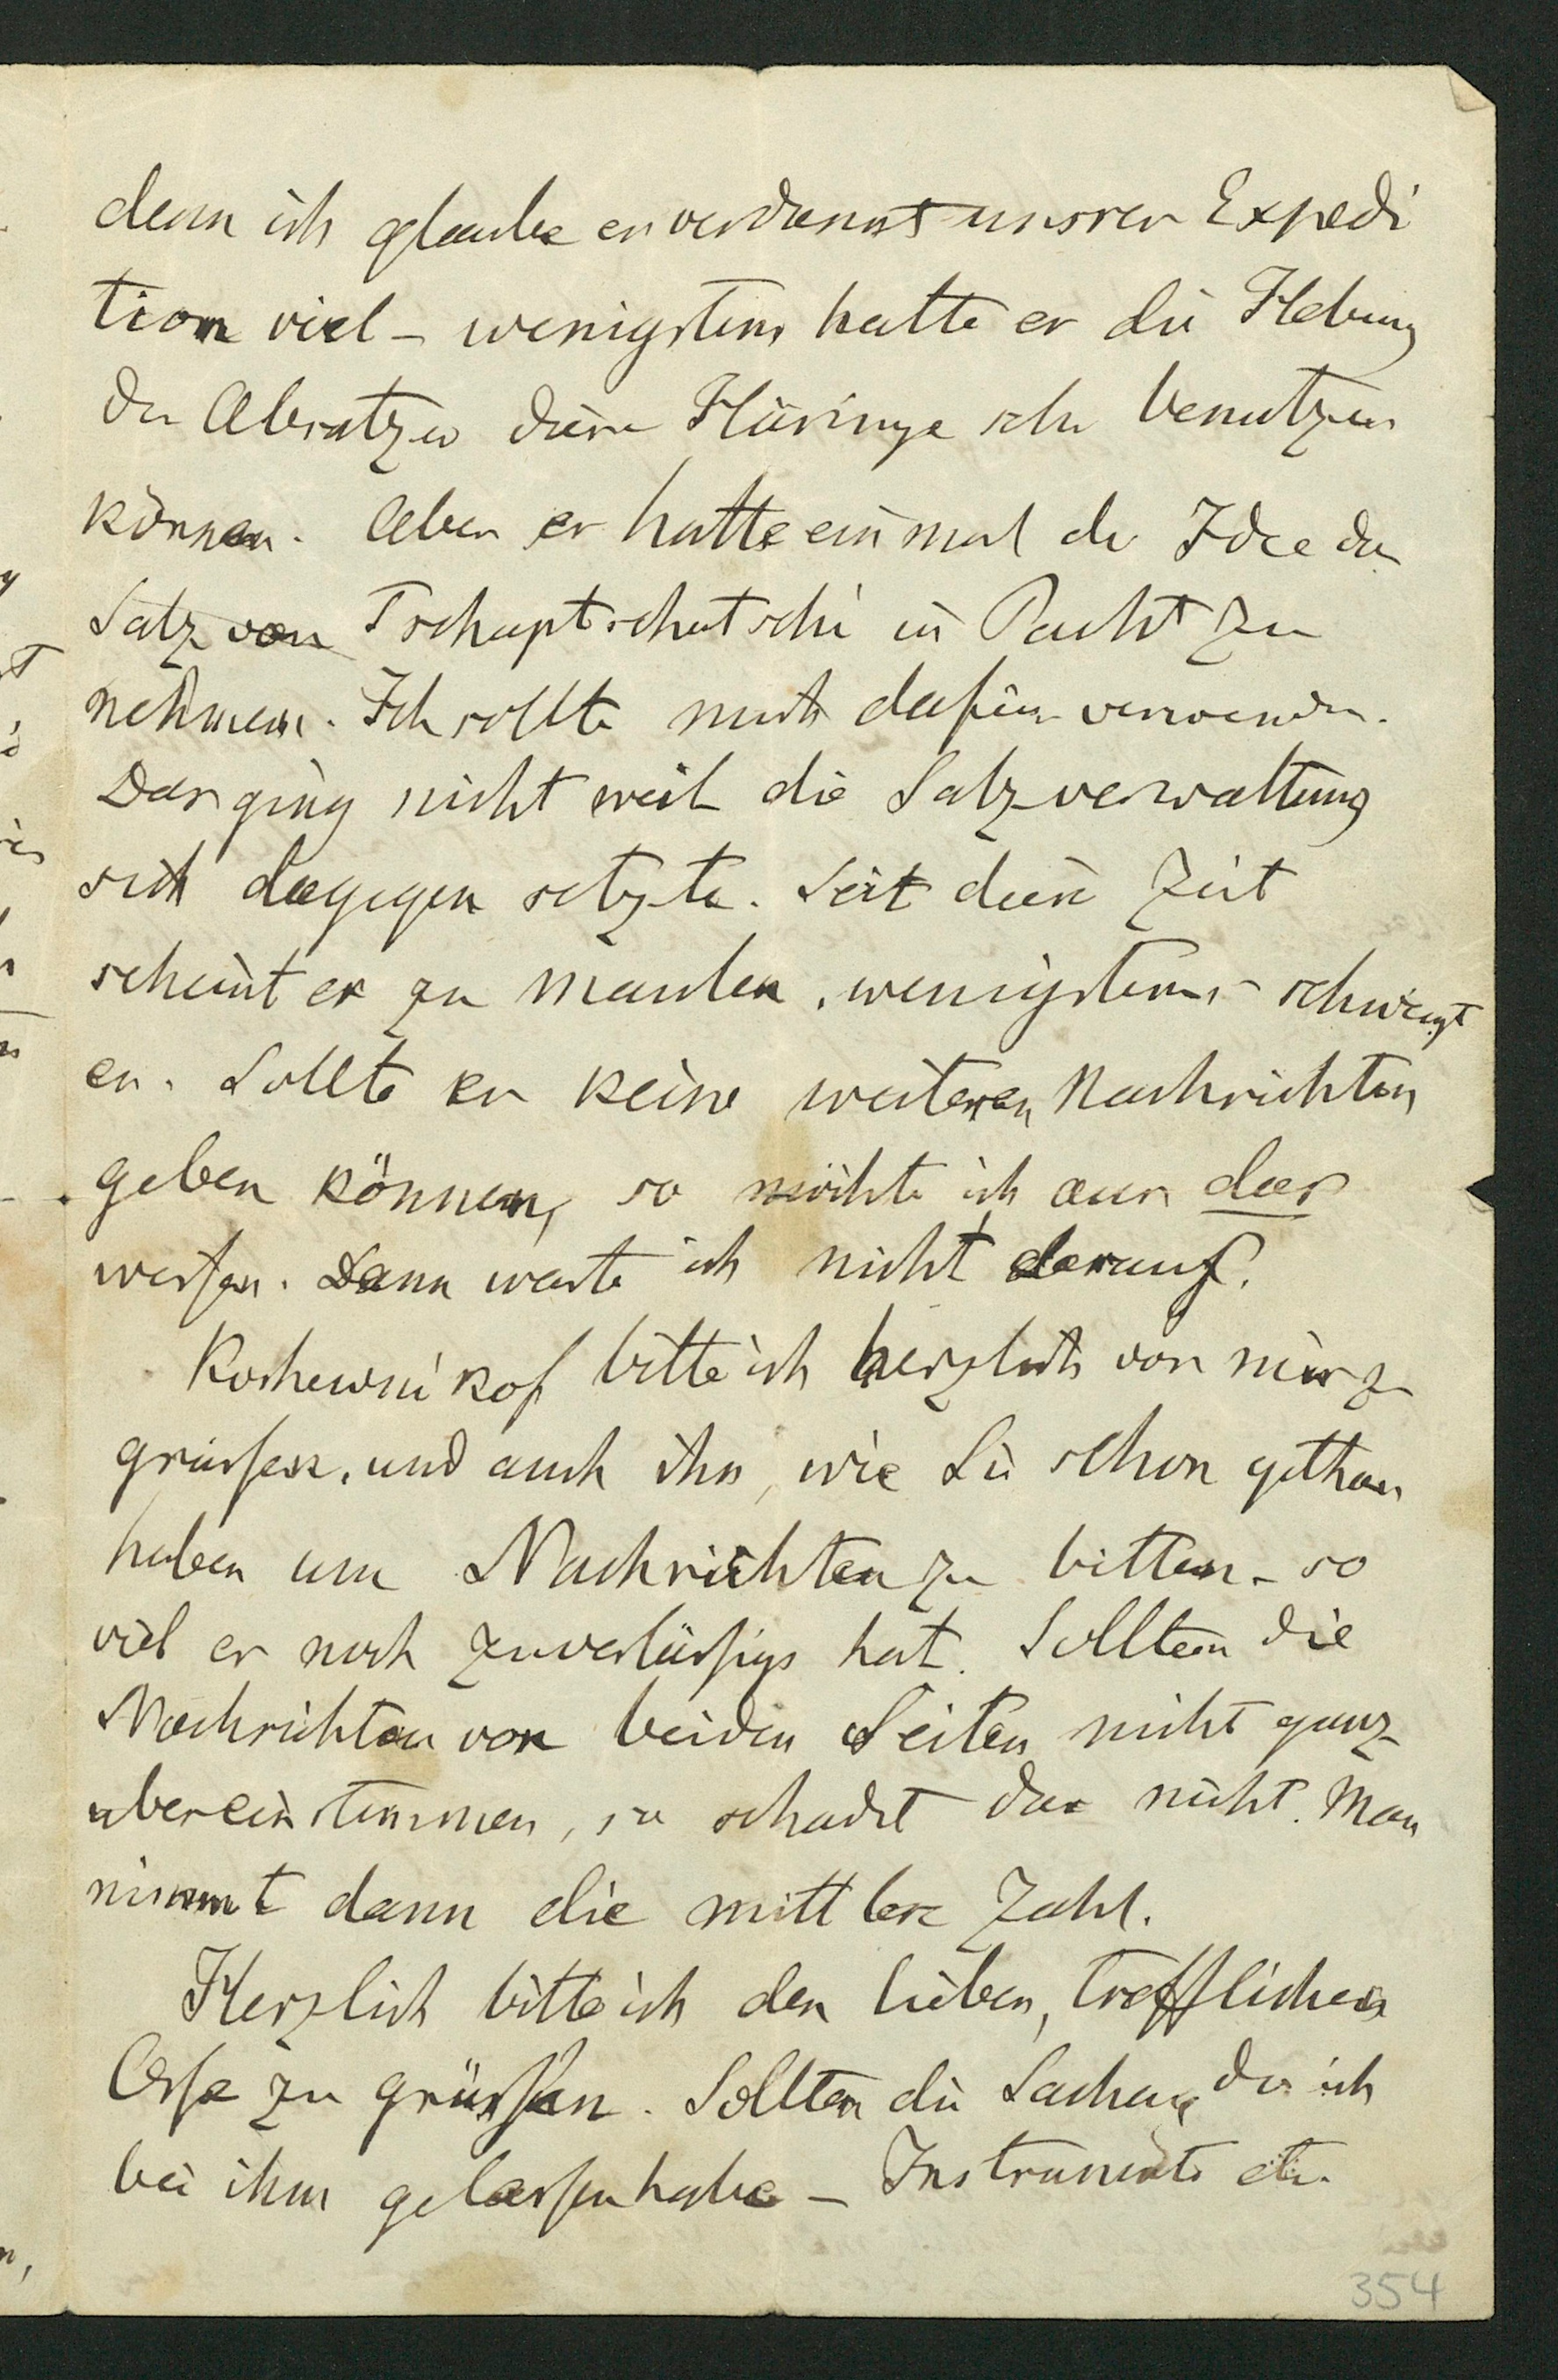 denn ich glaube er verdankt unsrer Expedi
tion viel – wenigstens hatte er die Hebung
des Absatzes dieser Häringe sehr benutzen
können. Aber er hatte einmal die Idee das
Salz von Tschaptschatschi in Pacht zu
nehmen. Ich sollte mich dafür verwenden.
Das ging nicht weil die Salzverwaltung
sich dagegen setzte. Seit dieser Zeit
scheint er zu maulen, wenigstens schweigt
er. Sollte er keine weiteren Nachrichten
geben können, so möchte ich nur das
wissen. Dann warte ich nicht darauf.
Koshewnikof bitte ich herzlich von mir zu
grüssen, und auch ihn, wie Sie schon gethan
haben um Nachrichten zu bitten – so
viel er noch zuverlässiges hat. Sollten die
Nachrichten von beiden Seiten nicht ganz
übereinstimmen, so schadet das nicht. Man
nimmt dann die mittlere Zahl.
Herzlich bitte ich den lieben, trefflichen
Osse zu grüssen. Sollten die Sachen, die ich
bei ihm gelassen habe – Instrumente etc.
354